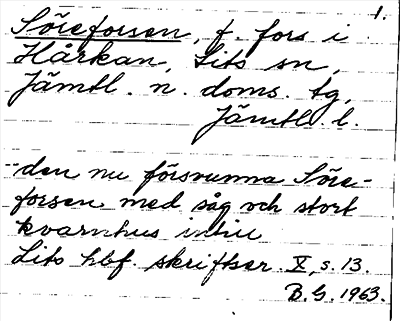 1.
Söreforsen, f. fors i
Hårkan, Lits sn,
Jämtl. n. doms. tg,
Jämtl. l.
den nu försvunna Söre-
forsen med såg och stort
kvarnhus intill
Lits hbf. skriftser. X, s. 13.
B.G. 1963.